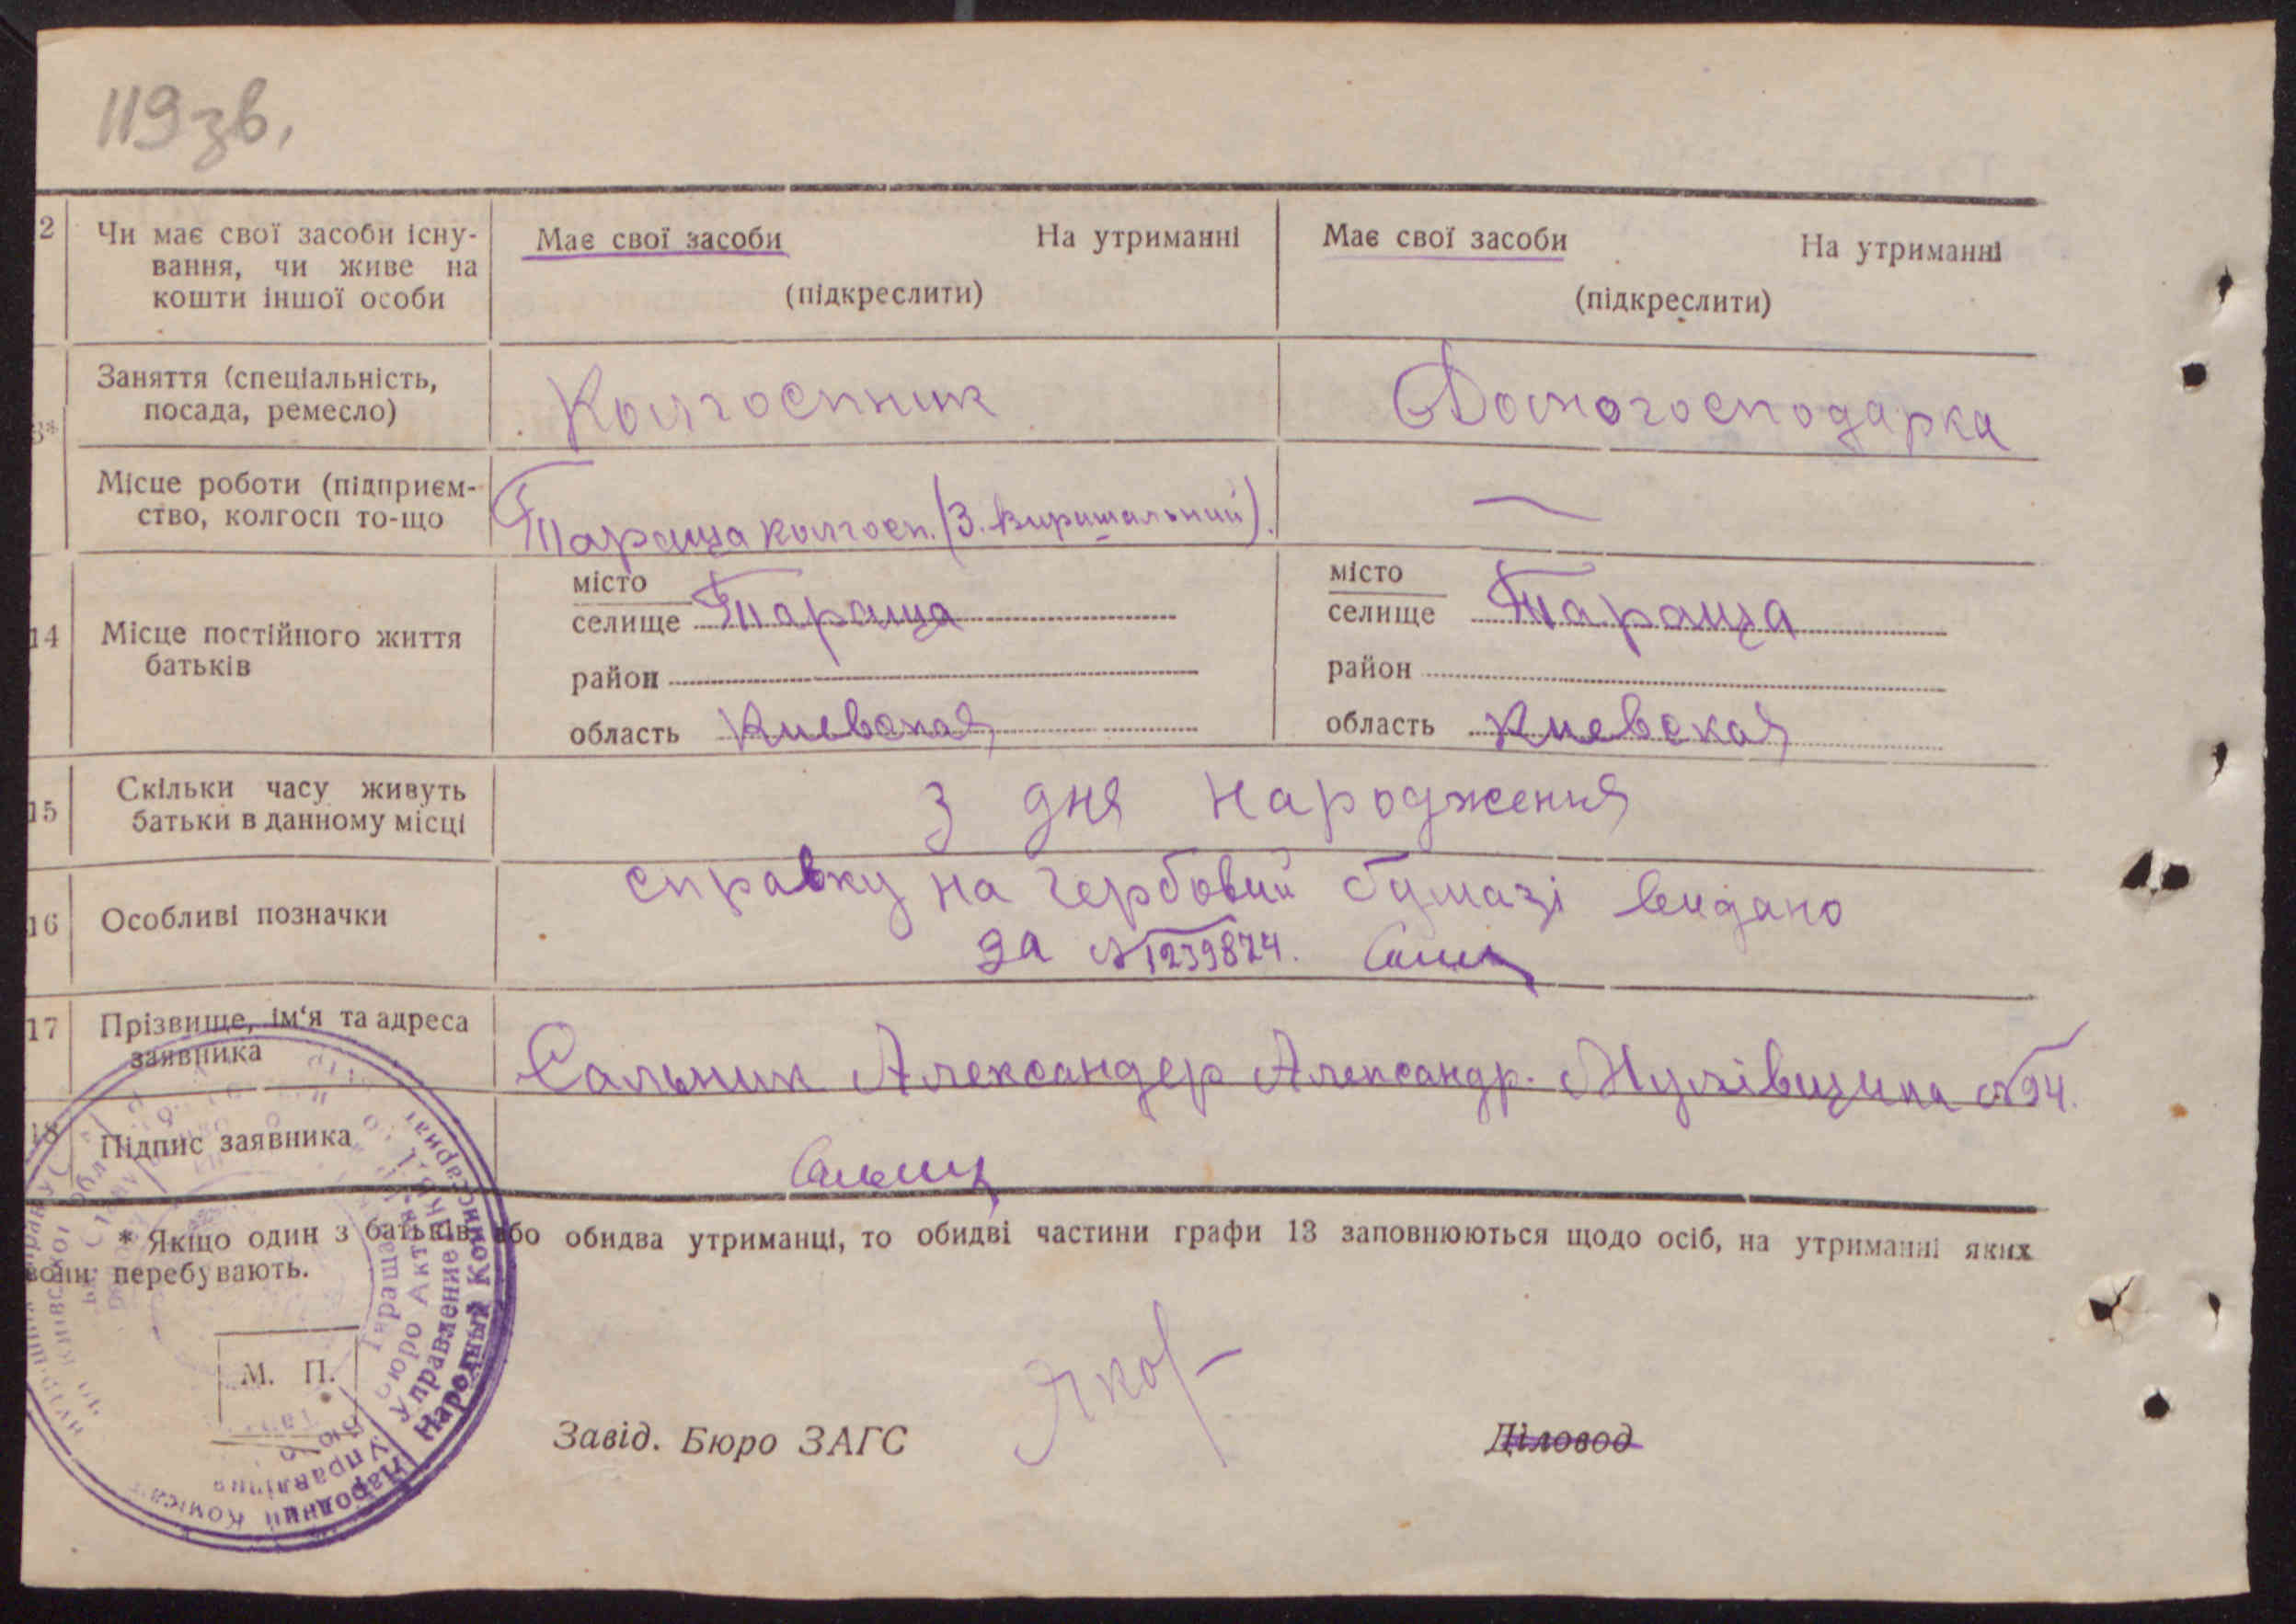 119 зв.
2 Чи має свої засоби існу-
вання, чи живе на
кошти іншої особи
Має свої засоби На утриманні
(підкреслити)
Має свої засоби На утриманні
(підкреслити)
3*
Заняття (спеціальність,
посада, ремесло)
Колгоспник
Домогосподарка
Місце роботи (підприєм-
ство, колгосп то-що
Тараща колгосп. (3. Вирішальний).
—
14 Місце постійного життя
батьків
місто
селище Тараща
район
область Киевская
місто
селище Тараща
район
область Киевская
15 Скільки часу живуть
батьки в данному місці
З дня народження
16 Особливі позначки
справку на гербовий бумазі видано
за № 1239874.
17 Прізвище, ім'я та адреса
заявника
Сальник Александер Александр. №94.
18 Підпис заявника
* Якщо один з батьків або обидва утриманці, то обидві частини графи 13 заповнюються щодо осіб, на утриманні яких
вони перебувають.
М. П.
Завід. Бюро ЗАГС
Діловод
Народный Комиссариат
Управление
Бюро Актов
Тараща
Народний Коміса
Управління
Бюро